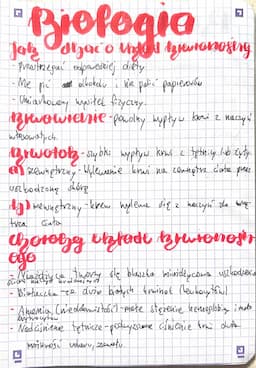 Biologia
Jak dbać o układ krwionośny
- Przestrzegać odpowiedniej diety
- Nie pić alkoholu i nie palić papierosów
- Umiarkowany wysiłek fizyczny.
Krwawienie - powolny wypływ krwi z naczyń
włosowatych.
Krwotok - szybki wypływ krwi z tętnicy lub żyły
a) zewnętrzny - Wylewanie krwi na zewnątrz ciała przez
uszkodzoną skórę
b) wewnętrzny - krew wylewa się z naczyń do
ciała
Choroby układu krwionośn
ego
- Miażdżyca tworzy się blaszka miażdżycowa
- Białaczka - za dużo białych krwinek (leukocytów)
- Anemia (niedokrwistość) - małe stężenie hemoglobiny i mało
erytrocytów
- Nadciśnienie tętnicze - podwyższone ciśnienie krwi
możliwość udaru, zawału.